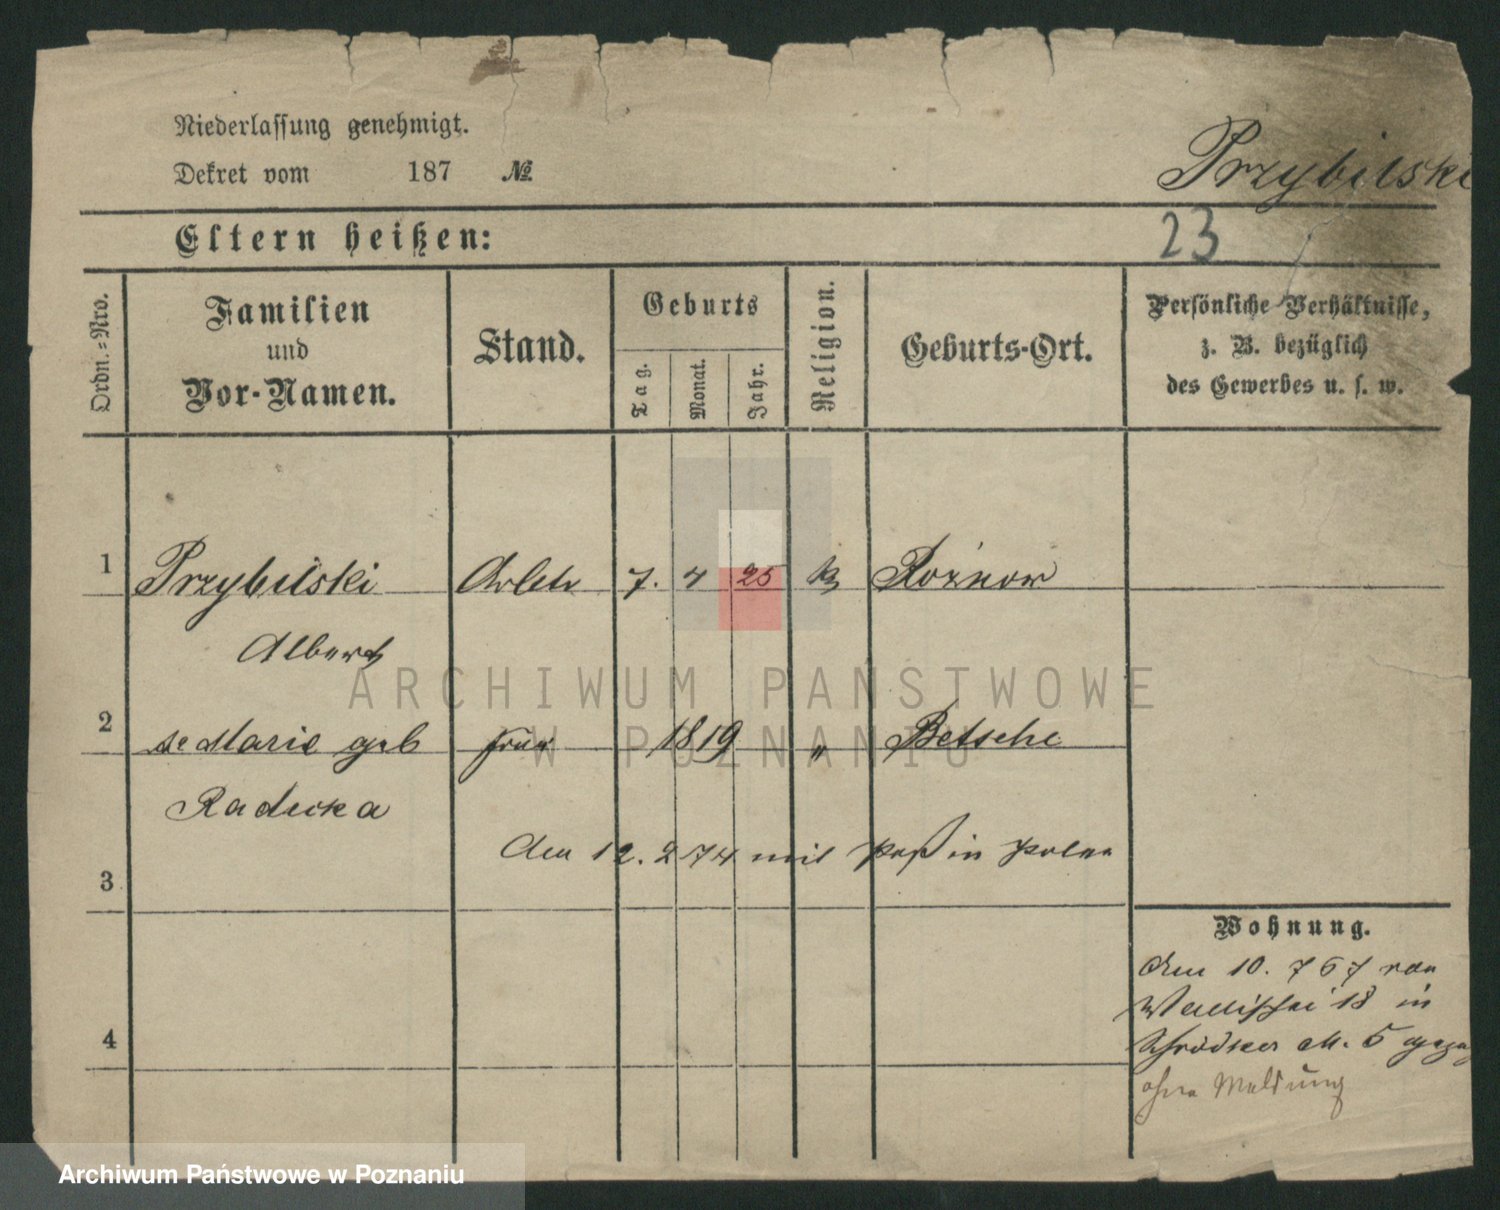 Niederlassung genehmigt.
Dekret vom 187 №
Przybilski
23
Eltern heißen:
Ordn.-Nro.
Familien
und
Vor-Namen.
Stand.
Geburts
Tag.
Monat.
Jahr.
Religion.
Geburts-Ort.
Persönliche Verhältnisse,
z. B. bezüglich
des Gewerbes u. s. w.
1 Przybilski Arbtr 7. 4 25 k Rożnow
Albert
ARCHIWUM PAŃSTWOWE
W POZNANIU
2 Marie geb Frau 1819 " Betsche
Radecka
den 12. 2 74 mit Paß in Polen
3
Wohnung.
den 10. 7 67 von
Wallischei 18 in
Schrodker M. 5
ohne Meldung
4
Archiwum Państwowe w Poznaniu